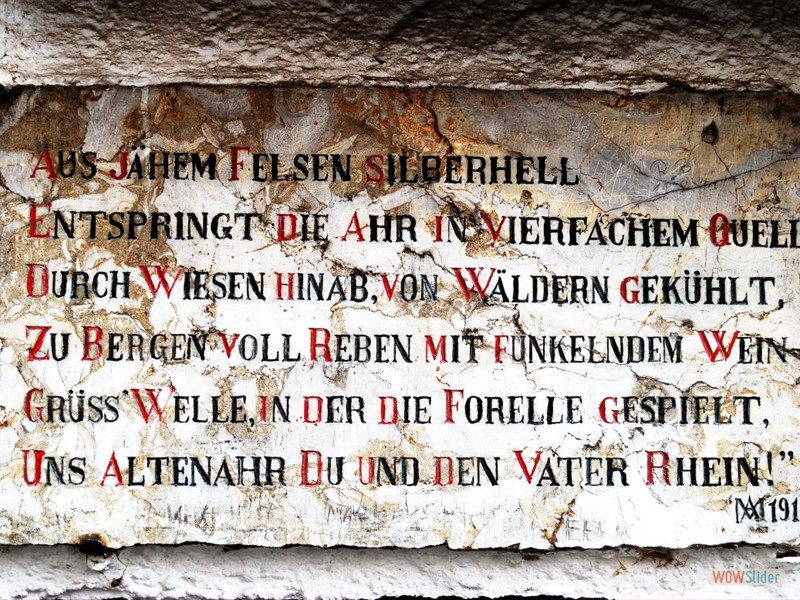 AUS JÄHEM FELSEN SILBERHELL
ENTSPRINGT DIE AHR IN VIERFACHEM QUELL
DURCH WIESEN HINAB, VON WÄLDERN GEKÜHLT,
ZU BERGEN VOLL REBEN MIT FUNKELNDEM WEIN
GRÜSS' WELLE, IN DER DIE FORELLE GESPIELT,
UNS ALTENAHR DU UND DEN VATER RHEIN!"
191
WOWSlider